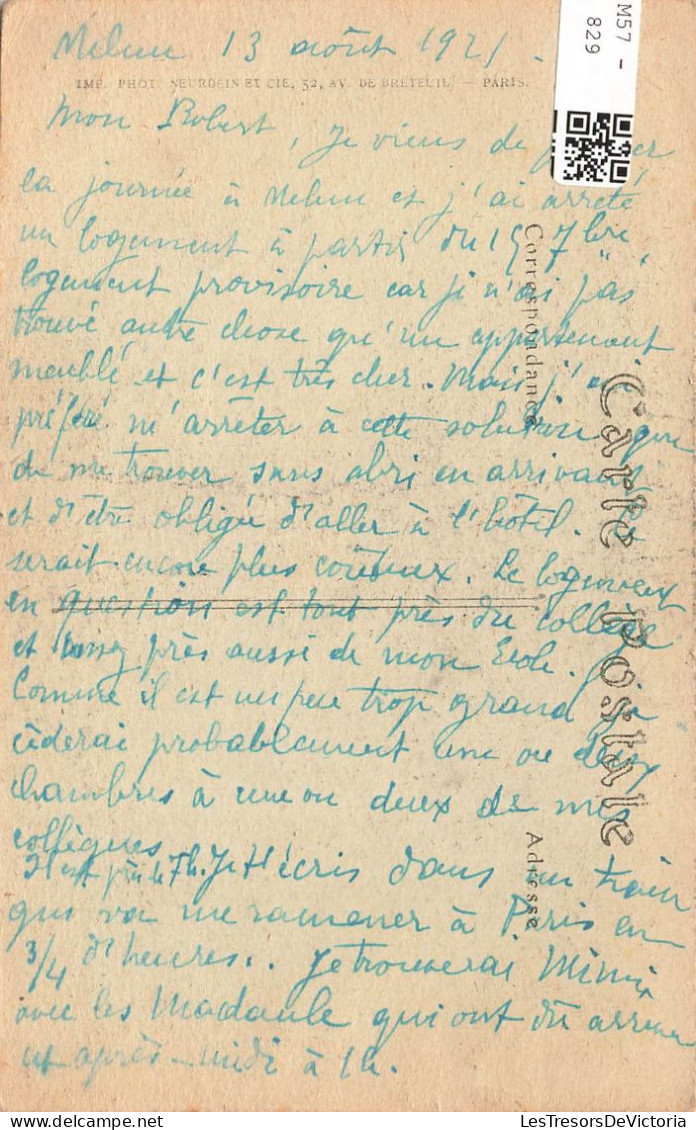 Melun 13 août 1921.
IMP. PHOT. NEURDEIN ET CIE, 52, AV. DE BRETEUIL. — PARIS.
M57 -
829
Mon Robert, Je viens de
la journée à Melun et j'ai arrêté
un logement à partir du 7bre,
logement provisoire car je n'ai pas
trouvé autre chose qu'un appartement
meublé et c'est très cher. Mais j'ai
préféré m'arrêter à cette solution que
de me trouver sans abri en arrivant
et d'être obligée d'aller à l'hôtel. Ce
serait encore plus coûteux. Le logement
en question est tout près du collège
et assez près aussi de mon Ecole.
Comme il est un peu trop grand je
cèderai probablement une ou deux
chambres à une ou deux de mes
collègues.
Il est près de 7h. Je t'écris dans un train
qui va me ramener à Paris en
3/4 d'heures.. Je trouverai Mimi
avec les Madaule qui ont dû arriver
cet après-midi à 1h.
Correspondance
Carte Postale
Adresse
LesTresorsDeVictoria
delcampe.net